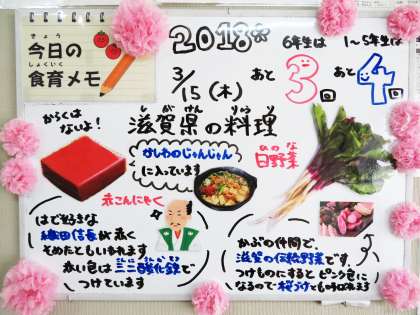 きょう
今日の
しょくいく
食育メモ
2018
3/15(木)
6年生は
1~5年生は
あと
3回
あと
4回
しがけん りょうり
滋賀県の料理
からくは
ないよ!
かしわのじゅんじゅん
に入っています
ひのな
日野菜
赤こんにゃく
はで好きな
織田信長が赤く
そめたともいわれます
赤い色は三二酸化鉄で
つけています
かぶの仲間で、
滋賀の伝統野菜です。
つけものにするとピンク色に
なるので桜づけともいわれます